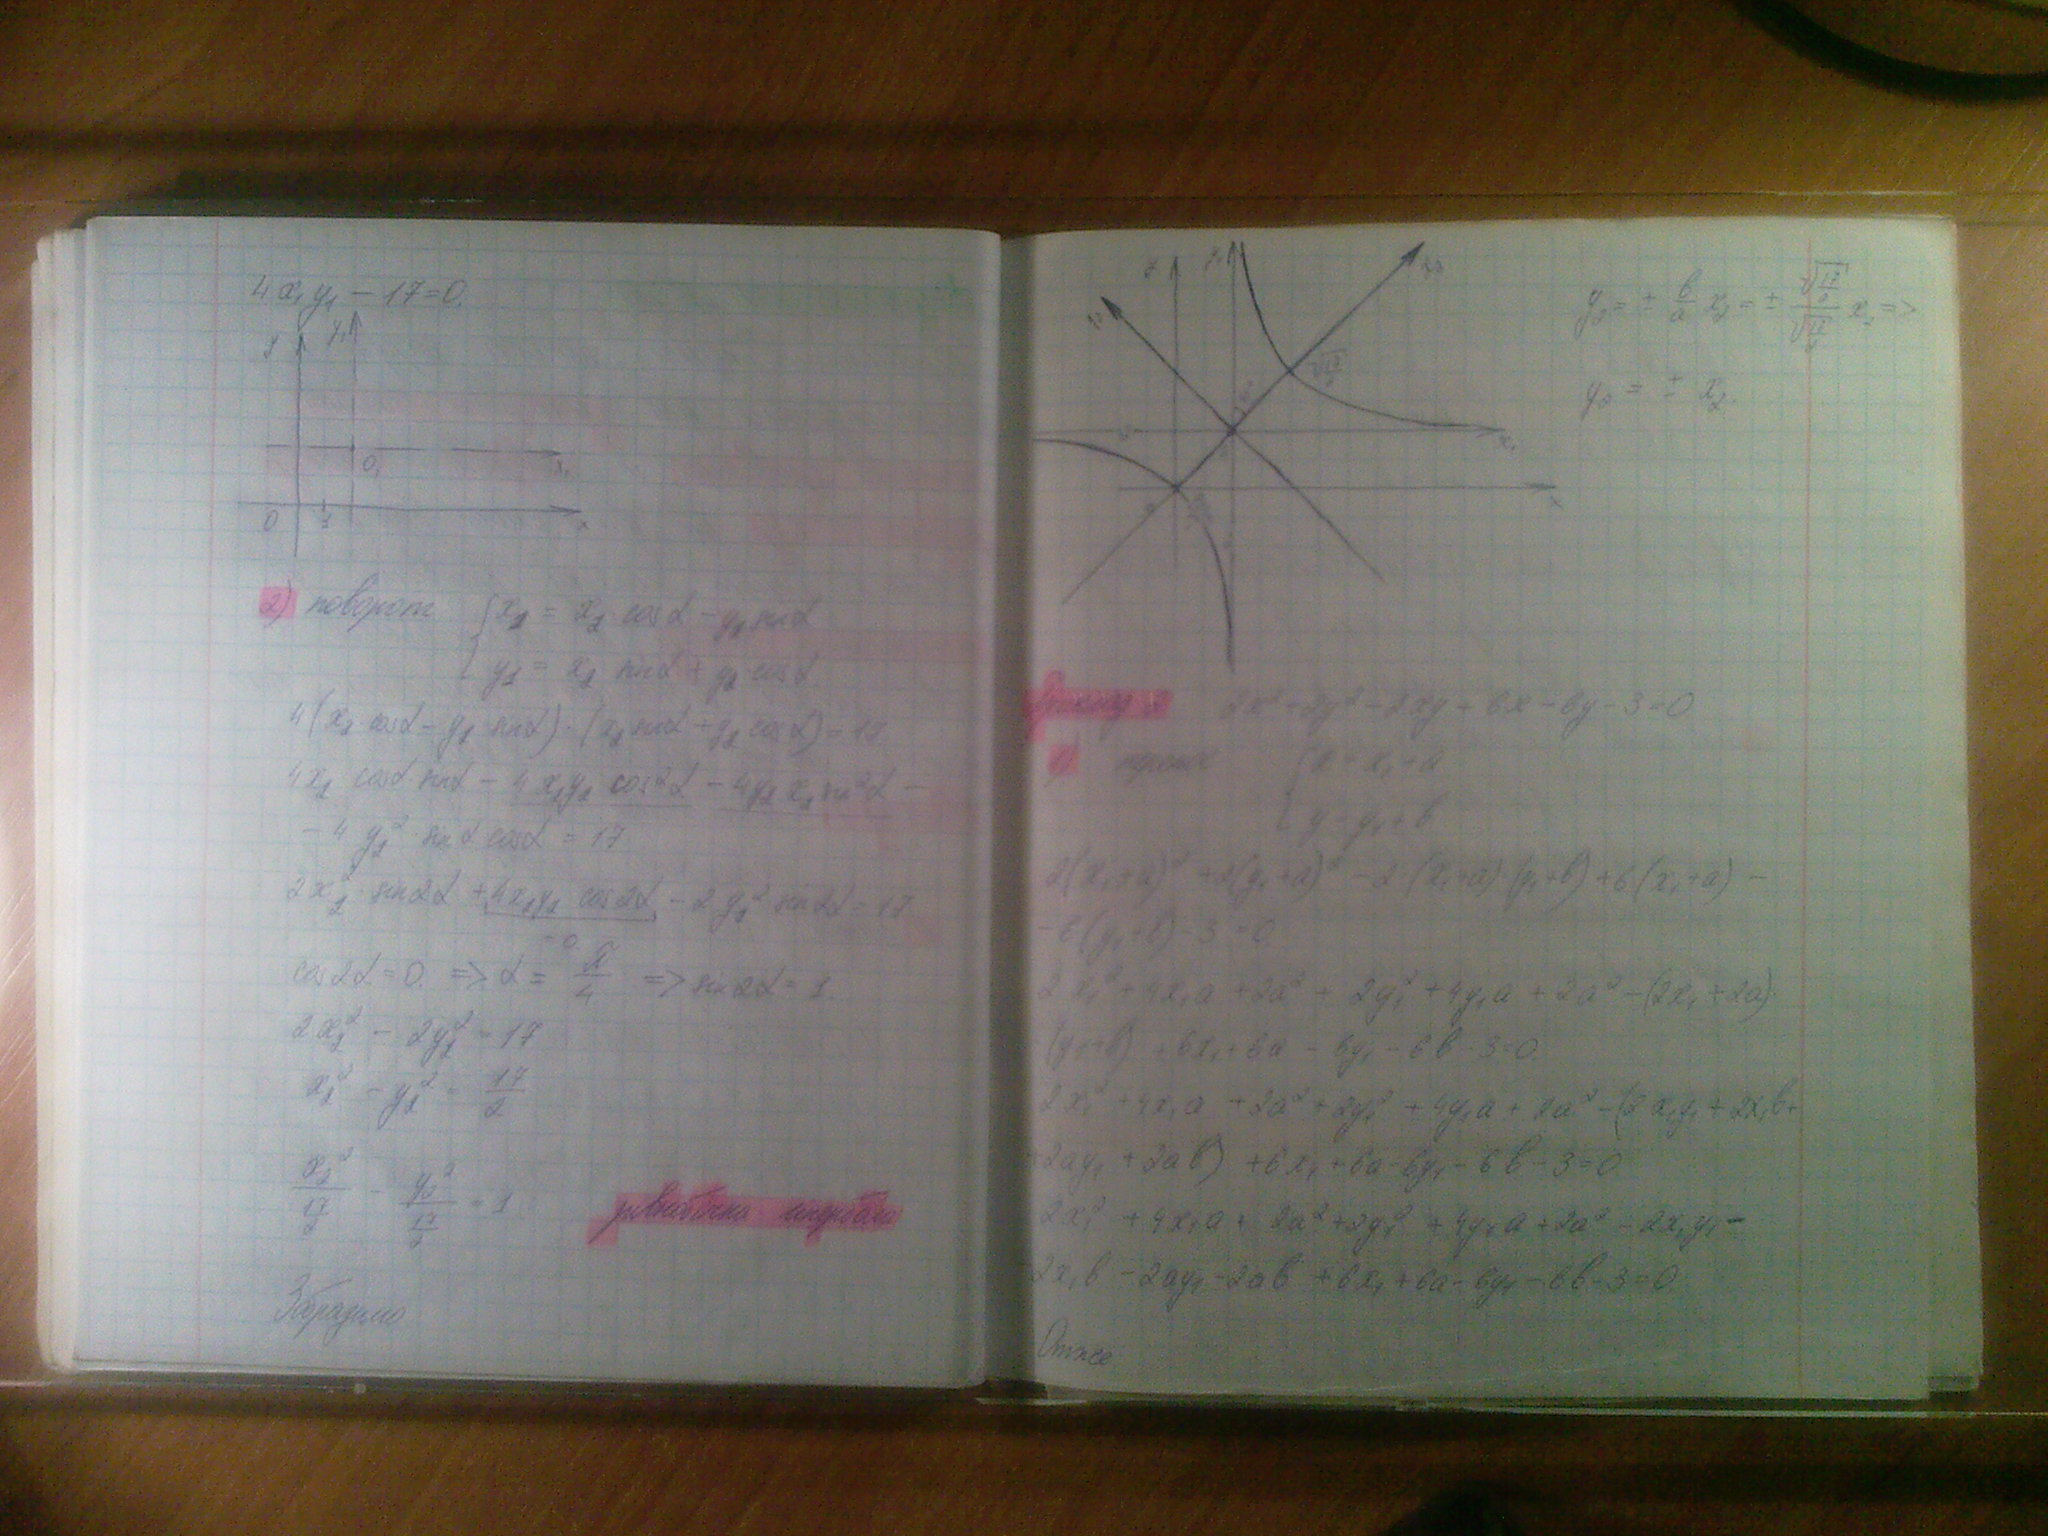 4x₁y₁ − 17 = 0.
y y₁
O₁ x₁
0 x
2) поворот { x₁ = x₂ cosα − y₂ sinα
y₁ = x₂ sinα + y₂ cosα
4(x₂ cosα − y₂ sinα)·(x₂ sinα + y₂ cosα) = 17.
4x₂ cosα sinα − 4x₂y₂ cos²α − 4y₂x₂ sin²α −
− 4y₂² · sinα cosα = 17
2x₂² · sin2α + 4x₂y₂ cos2α − 2y₂² · sin2α = 17
= 0
cos2α = 0. => α = π/4 => sin2α = 1.
2x₂² − 2y₂² = 17
x₂² − y₂² = 17/2
x₂²/(17/2) − y₂²/(17/2) = 1
Зобразимо
y y₁ x₂
y₂
x₁
x
y₂ = ± b/a x₂ = ± √(17/2)/√(17/2) x₂ =>
y₂ = ± x₂.
Приклад 2 2x² + 2y² − 2xy + 6x − 6y − 3 = 0
1) { x = x₁ + a
y = y₁ + b
2(x₁+a)² + 2(y₁+a)² − 2·(x₁+a)·(y₁+b) + 6(x₁+a) −
− 6(y₁+b) − 3 = 0
2x₁² + 4x₁a + 2a² + 2y₁² + 4y₁a + 2a² − (2x₁ + 2a)·
(y₁+b) + 6x₁ + 6a − 6y₁ − 6b − 3 = 0.
2x₁² + 4x₁a + 2a² + 2y₁² + 4y₁a + 2a² − (2x₁y₁ + 2x₁b +
+ 2ay₁ + 2ab) + 6x₁ + 6a − 6y₁ − 6b − 3 = 0
2x₁² + 4x₁a + 2a² + 2y₁² + 4y₁a + 2a² − 2x₁y₁ −
2x₁b − 2ay₁ − 2ab + 6x₁ + 6a − 6y₁ − 6b − 3 = 0.
Отже